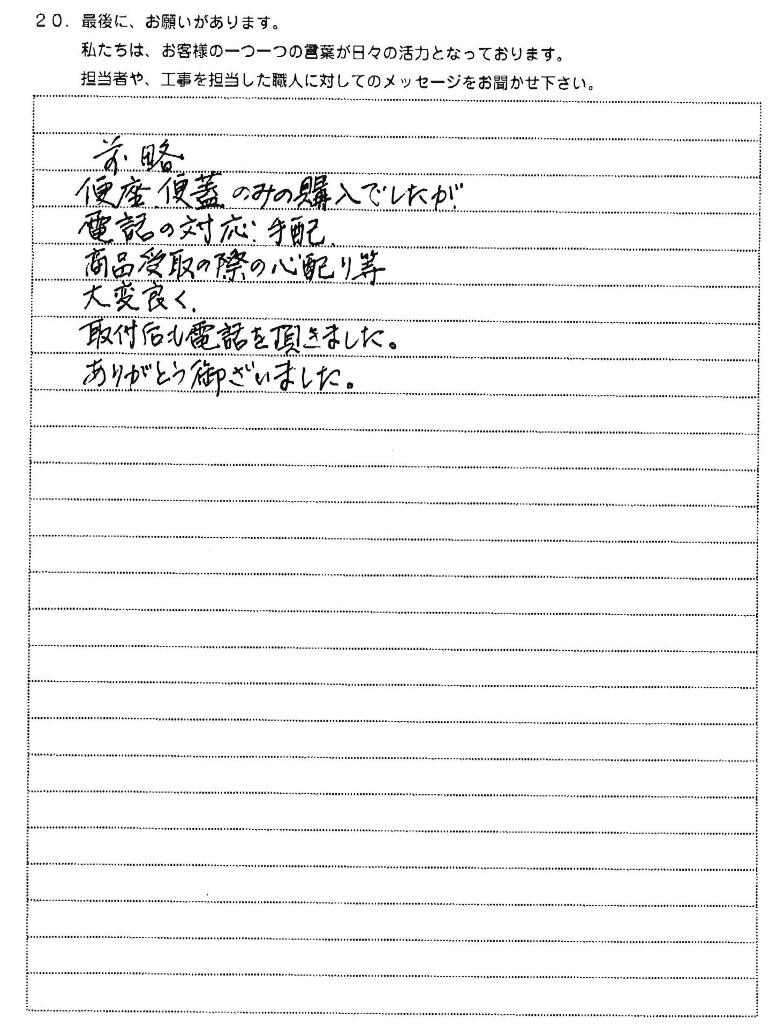 20. 最後に、お願いがあります。
私たちは、お客様の一つ一つの言葉が日々の活力となっております。
担当者や、工事を担当した職人に対してのメッセージをお聞かせ下さい。
前略
便座、便蓋のみの購入でしたが、
電話の対応、手配、
商品受取の際の心配り等
大変良く、
取付后も電話を頂きました。
ありがとう御ざいました。